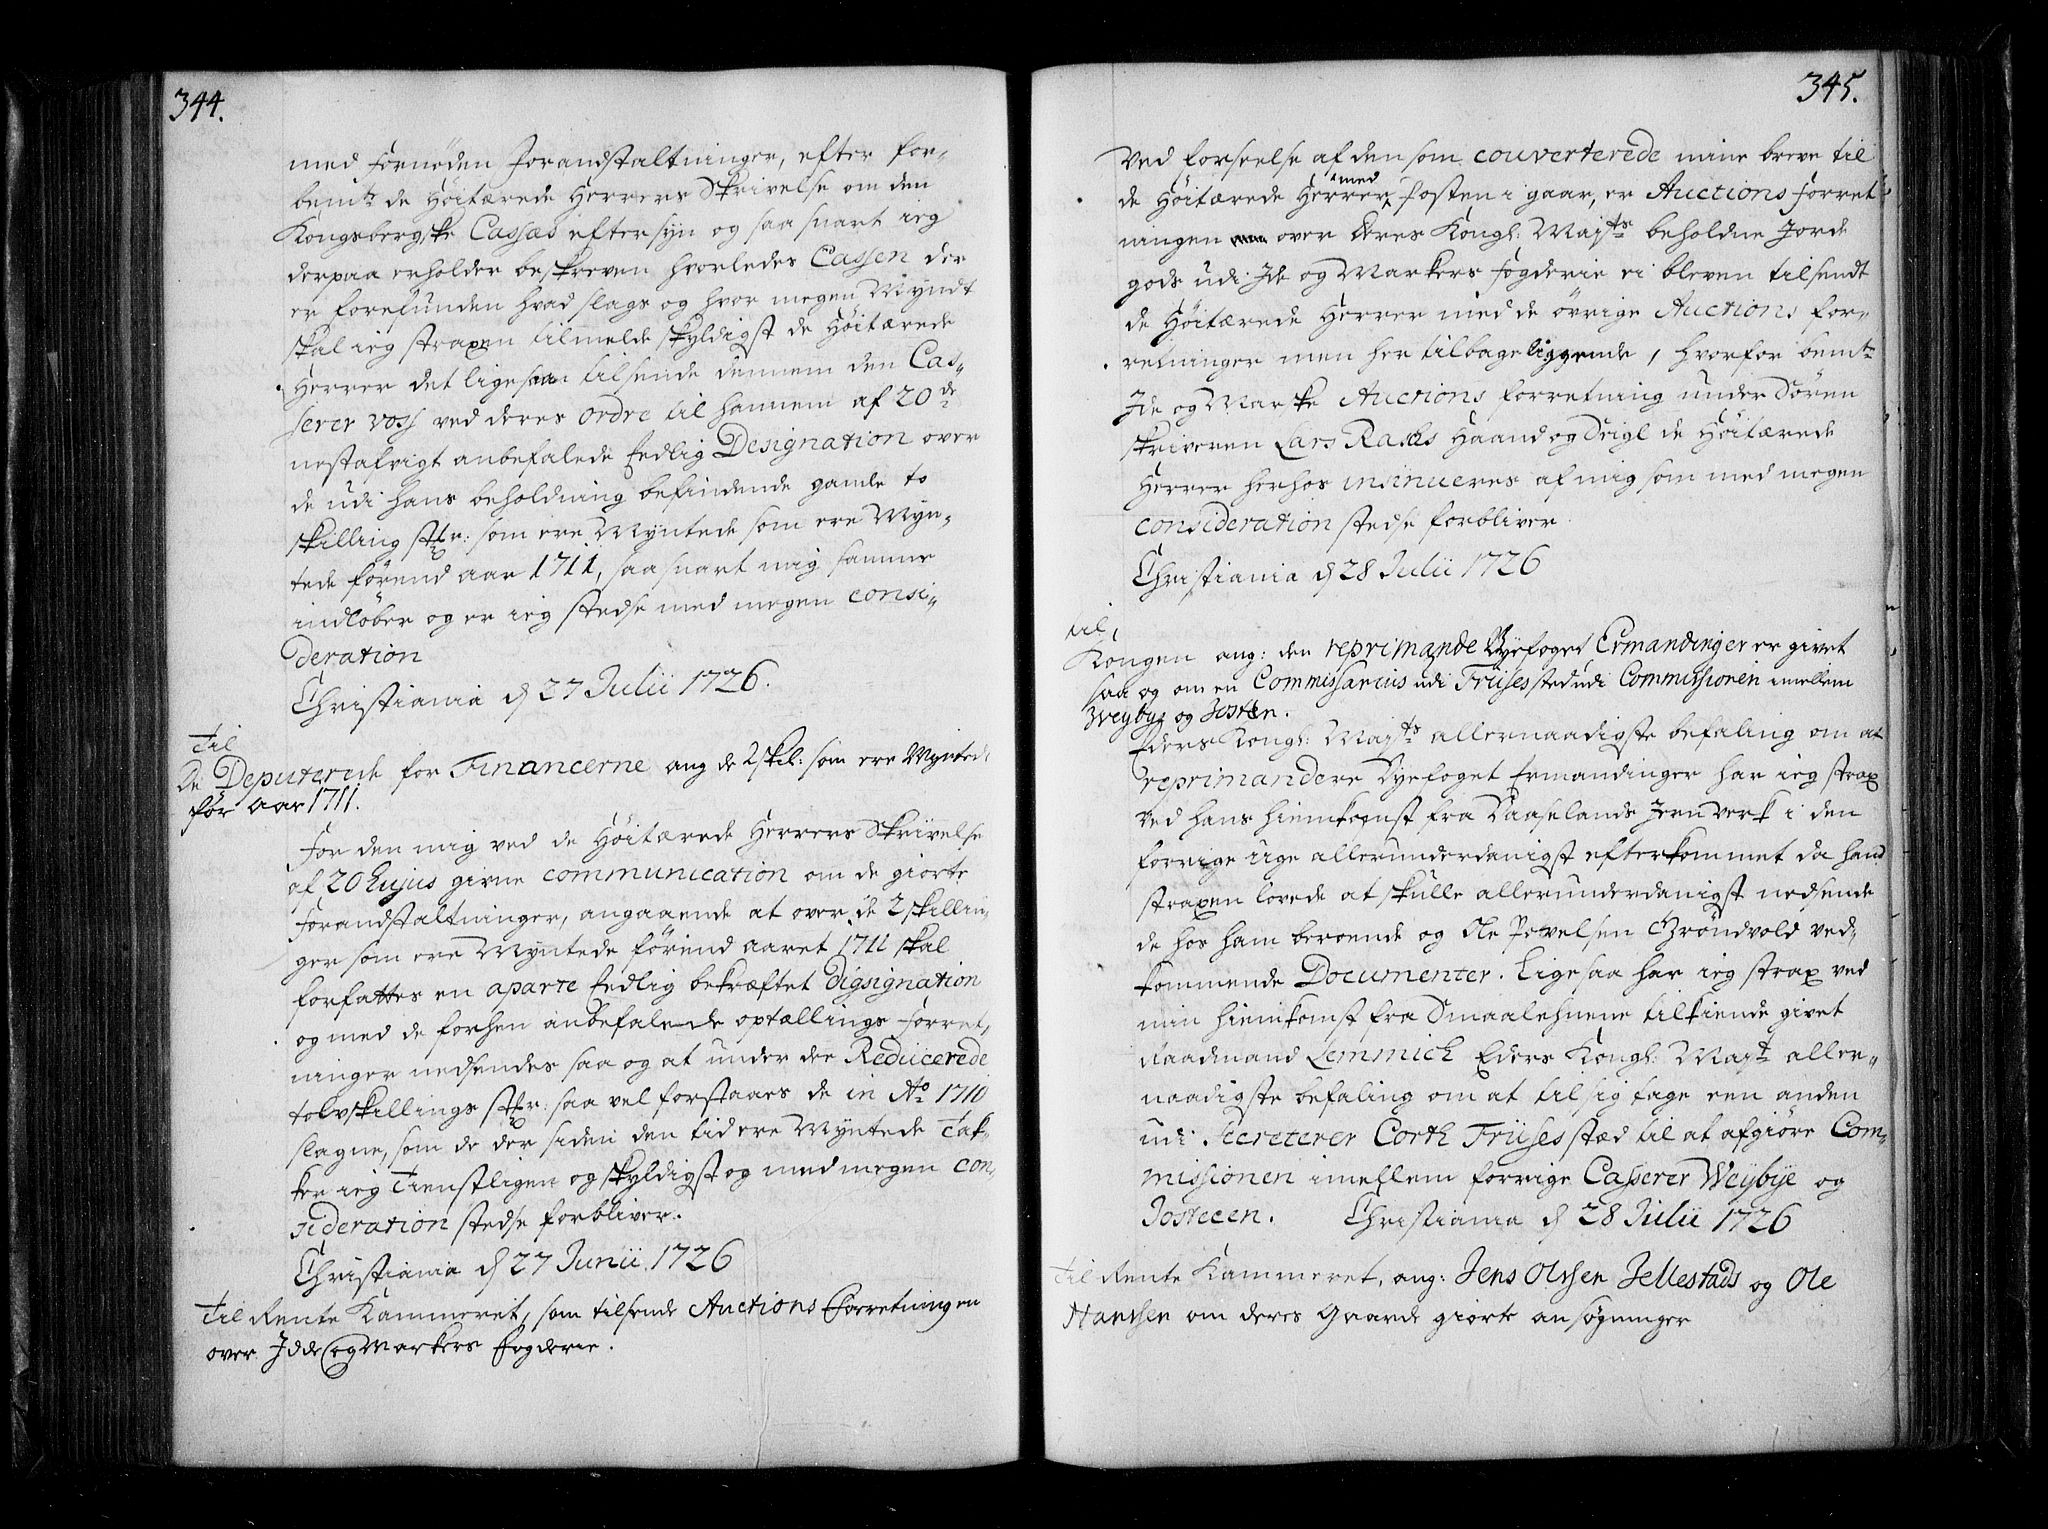 344.
med fornøden foranstaltninger, efter for-
bemte de Høitærede Herrers Skrivelse om den
Kongsbergske Cassas eftersyn og saa snart ieg
derpaa erholder beskreven hvorledes Cassen der
er forefunden hvad slags og hvor megen Myndt
skal ieg straxen tilmelde skyldigst de Høitærede
Herrer det ligesaa tilsende dennem den Cas-
serer Voss ved deres ordre til hannem af 20de
nestafvigt anbefalede Eedlig Designation over
de udi hans beholdning befindende gamle to
skilling stkr: som ere Myntede som ere Myn-
tede førend aar 1711, saa snart mig samme
indløber og er ieg stedse med megen consi-
deration
Christiania d 27 Julii 1726.
Til
De Deputerede for Financerne ang de 2 skil: som ere Myntede
før aar 1711.
For den mig ved de Høitærede Herrers Skrivelse
af 20 hujus givne communication om de giorte
forandstaltninger, angaaende at over de 2 skillin-
ger som ere Myntede førend aaret 1711 skal
forfattes en aparte Eedlig bekræftet Digsignation
og med de forhen anbefalede optællings forret-
ninger nedsendes saa og at under de Reducerede
tolvskillings stkr: saa vel forstaaes de in Ao 1710
slagne, som de der siden den tid ere Myntede Tak-
ker ieg Tienstligen og skyldigst og med megen con-
sideration stedse forbliver.
Christiania d 27 Junii 1726
Til Rente Kammeret, som tilsende Auctions Forretningen
over Idde og Markers fogderie.
345.
Ved forseelse af den som couverterede mine breve til
de Høitærede Herrer med Posten i gaar, er Auctions forret-
ningen over Deres Kongl: Mayts beholdne Jorde
gods udi Ide og Markers fogderie ei bleven tilsendt
de Høitærede Herrer med de øvrige Auctions for-
retninger men her tilbage liggende, hvorfor bemte
Ide og Marske Auctions forretning under Soren
skriveren Lars Rachs Haand og Seigl de Høitærede
Herrer herhos insinueres af mig som med megen
consideration stedse forbliver
Christiania d 28 Julii 1726
til
Kongen ang: den reprimande Byefoget Ermandinger er givet
saa og om en Commissarius udi Friises sted udi Commissionen imellem
Weybye og Josten.
Eders Kongl: Mayts allernaadigste befaling om at
reprimandere Byefoget Ermandinger har ieg strax
ved hans hiemkomst fra Baaselands Jernverk i den
forrige uge allerunderdanigst efterkommet da hand
straxen lovede at skulle allerunderdanigst nedsende
de hos ham beroende og Ole Povelsen Grøndvold ved-
kommende Documenter. Ligesaa har ieg strax ved
min hiemkomst fra Smaalehnene tilkiende givet
Raadmand Lemmich Eders Kongl: Mayts aller-
naadigste befaling om at til sig tage een anden
udi Secreterer Corth Friises stæd til at afgiøre Com-
missionen imellem forrige Casserer Weybye og
Jostecen. Christiania d 28 Julii 1726
Til Rente Kammeret, ang: Jens Olssen Jellestads og Ole
Hanssen om deres Gaarde giorte ansøgninger